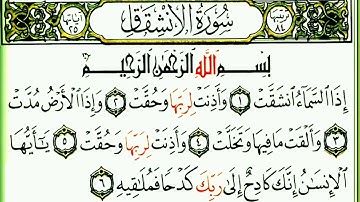 ترتيبها ٨٤ سُورَةُ الْإِنْشِقَاقِ آياتها ٢٥
بِسْمِ اللَّهِ الرَّحْمَٰنِ الرَّحِيمِ
إِذَا السَّمَاءُ انشَقَّتْ ١ وَأَذِنَتْ لِرَبِّهَا وَحُقَّتْ ٢ وَإِذَا الْأَرْضُ مُدَّتْ
٣ وَأَلْقَتْ مَا فِيهَا وَتَخَلَّتْ ٤ وَأَذِنَتْ لِرَبِّهَا وَحُقَّتْ ٥ يَا أَيُّهَا
الْإِنسَانُ إِنَّكَ كَادِحٌ إِلَىٰ رَبِّكَ كَدْحًا فَمُلَاقِيهِ ٦